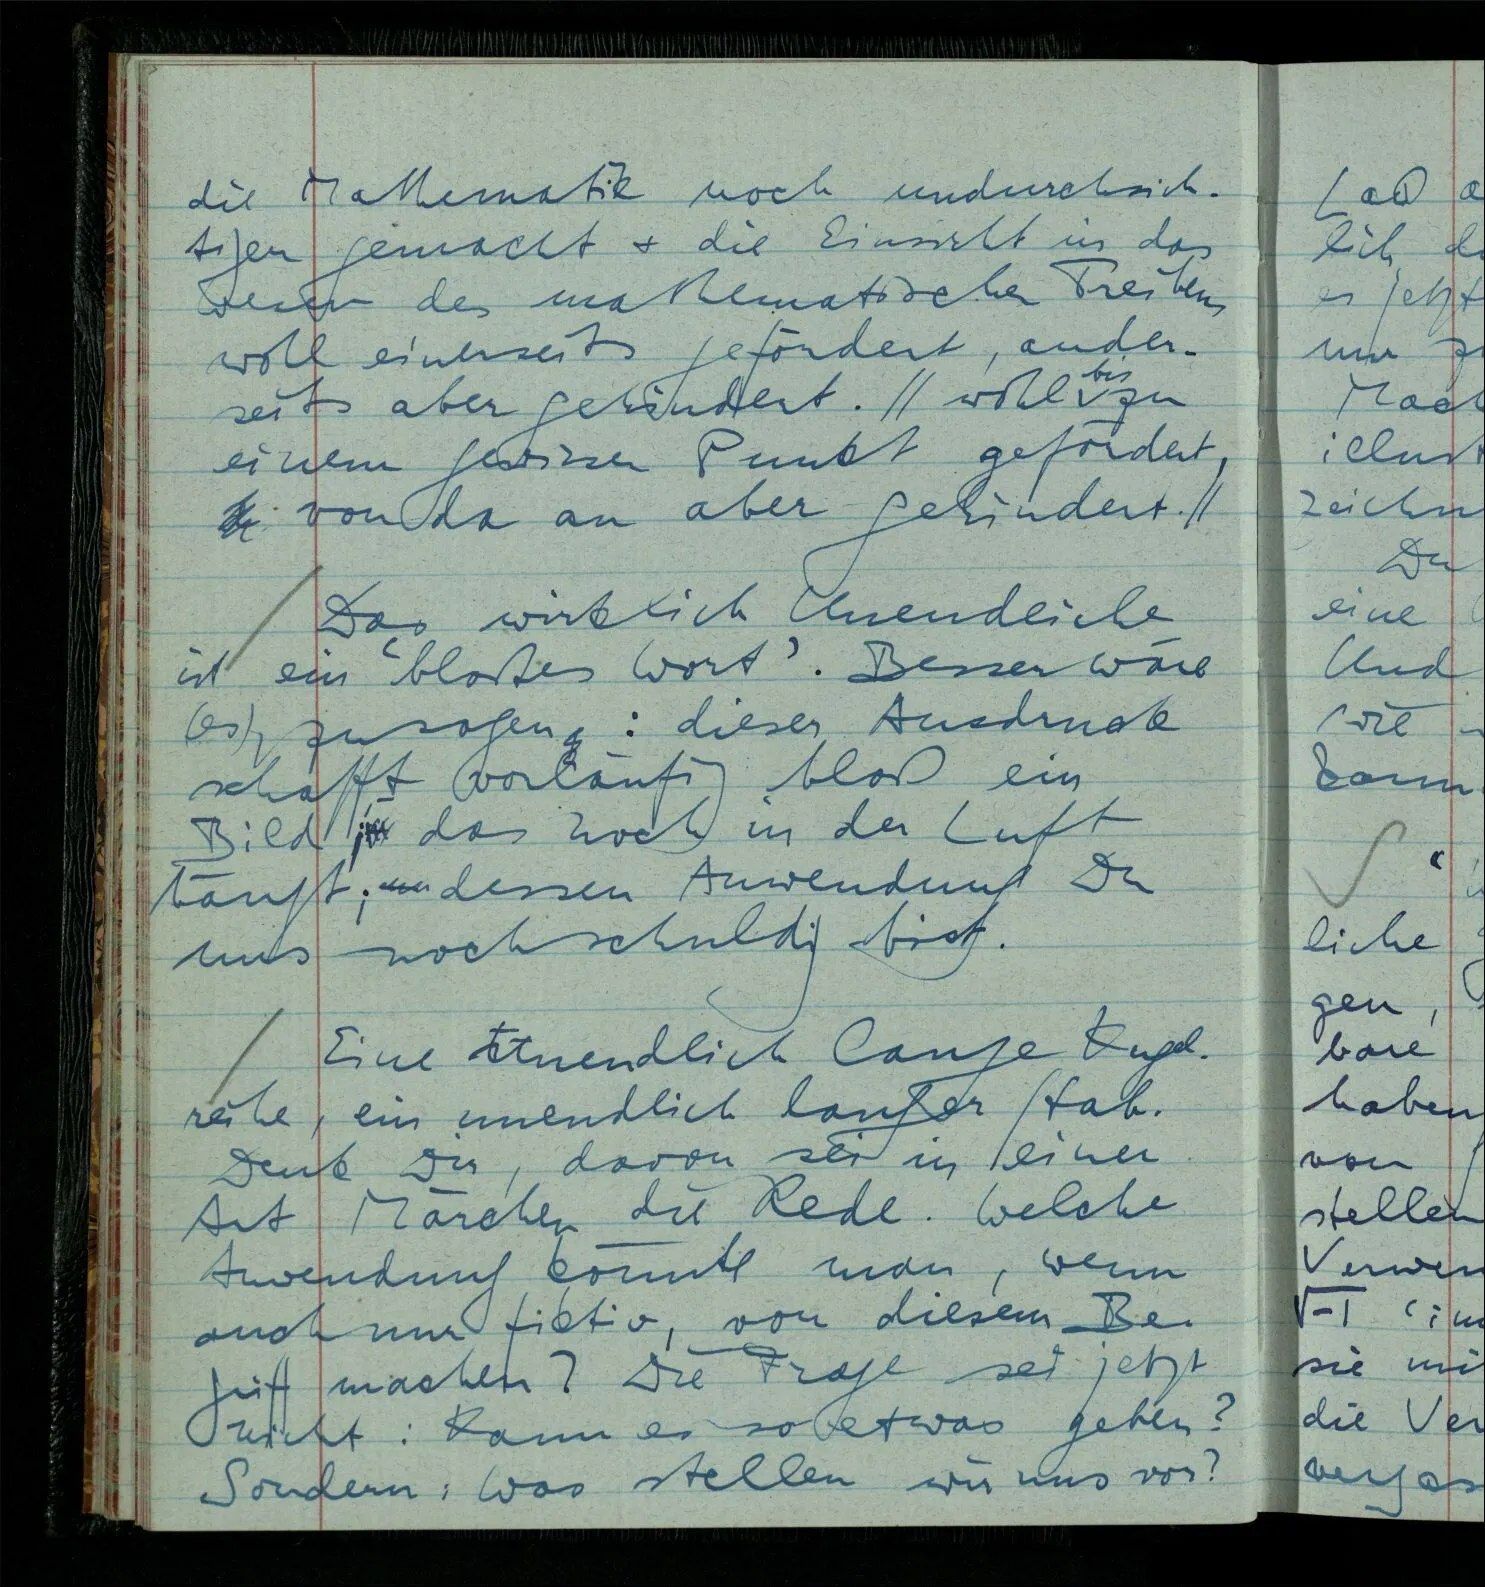 die Mathematik noch undurchsich-
tiger gemacht & die Einsicht in das
Wesen des mathematischen Treibens
wohl einerseits gefördert, ander-
seits aber gehindert. // wohl bis zu
einem gewissen Punkt gefördert,
von da an aber gehindert. //
/ Das wirklich Unendliche
ist ein ‘bloßes Wort’. Besser wäre
(es), zu sagen: dieser Ausdruck
schafft vorläufig bloß ein
Bild, das noch in der Luft
hängt; dessen Anwendung Du
uns noch schuldig bist.
/ Eine unendlich lange Kugel-
reihe, ein unendlich langer Stab.
Denk Dir, davon sei in einer
Art Märchen die Rede. Welche
Anwendung könnte man, wenn
auch nur fiktiv, von diesem Be-
griff machen? Die Frage sei jetzt
nicht: Kann es so etwas geben?
Sondern: Was stellen wir uns vor?
Laß
lich
es jetzt
nur
zeichn
Du
eine
Und
wie
kann
✓ “
liche
gen,
bare
haben
von
stellen
Verwen
√-1
sie mi
die Ver